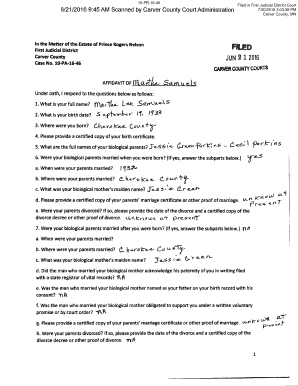 10-PR-16-46
Filed in First Judicial District Court
6/21/2016 9:45 AM Scanned by Carver County Court Administration
7/20/2016 3:03:38 PM
Carver County, MN
In the Matter of the Estate of Prince Rogers Nelson
First Judicial District
Carver County
Case No. 10-PR-16-46
FILED
JUN 21 2016
CARVER COUNTY COURTS
AFFIDAVIT OF Martha Samuels
Under oath, I respond to the questions below as follows:
1. What is your full name? Martha Lee Samuels
2. What is your birth date? September 19, 1938
3. Where were you born? Cherokee County
4. Please provide a certified copy of your birth certificate.
5. What are the full names of your biological parents? Jessie Perkins - Cecil Perkins
6. Were your biological parents married when you were born? (If yes, answer the subparts below.) yes
a. When were your parents married?
b. Where were your parents married? Cherokee County
c. What was your biological mother's maiden name? Jessie Green
d. Please provide a certified copy of your parents' marriage certificate or other proof of marriage. unknown at
present
e. Were your parents divorced? If so, please provide the date of the divorce and a certified copy of the
divorce decree or other proof of divorce. unknown at present
7. Were your biological parents married after you were born? (If yes, answer the subparts below.) no
a. When were your parents married?
b. Where were your parents married? Cherokee County
c. What was your biological mother's maiden name? Jessie Green
d. Did the man who married your biological mother acknowledge his paternity of you in writing filed
with a state registrar of vital records? NA
e. Was the man who married your biological mother named as your father on your birth record with his
consent? NA
f. Was the man who married your biological mother obligated to support you under a written voluntary
promise or by court order? NA
g. Please provide a certified copy of your parents' marriage certificate or other proof of marriage. unknown at
present
h. Were your parents divorced? If so, please provide the date of the divorce and a certified copy of the
divorce decree or other proof of divorce. NA
1